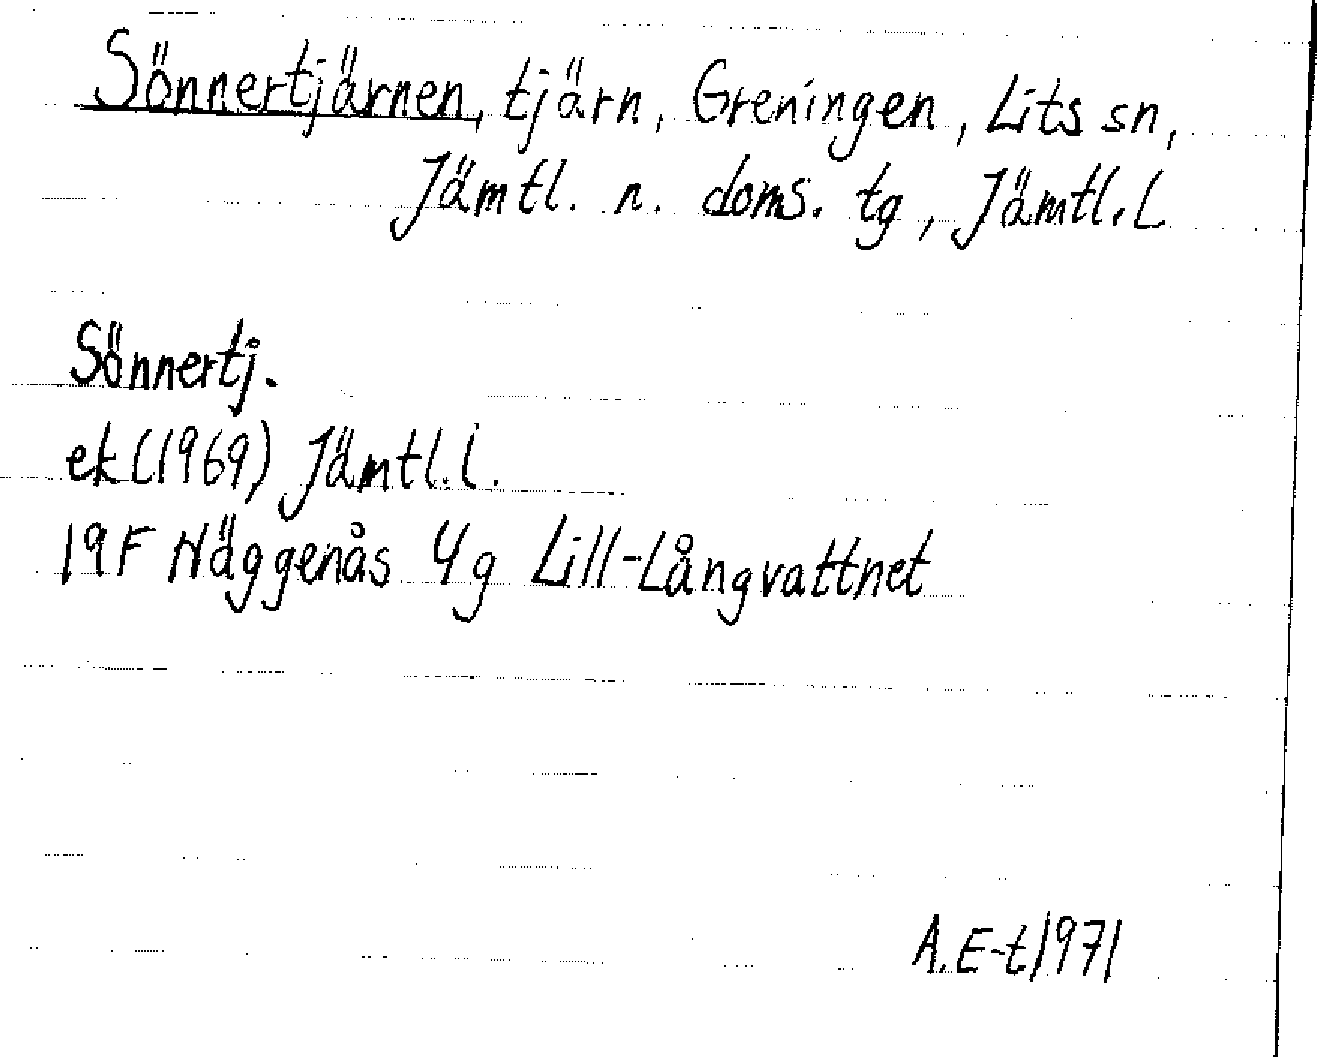 Sönnertjärnen, tjärn, Greningen, Lits sn,
Jämtl. n. doms. tg, Jämtl. L
Sönnertj.
ek (1969) Jämtl. l.
19F Häggenås 4g Lill-Långvattnet
A. E-t 1971